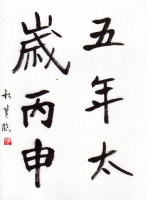 五年太
歲丙申